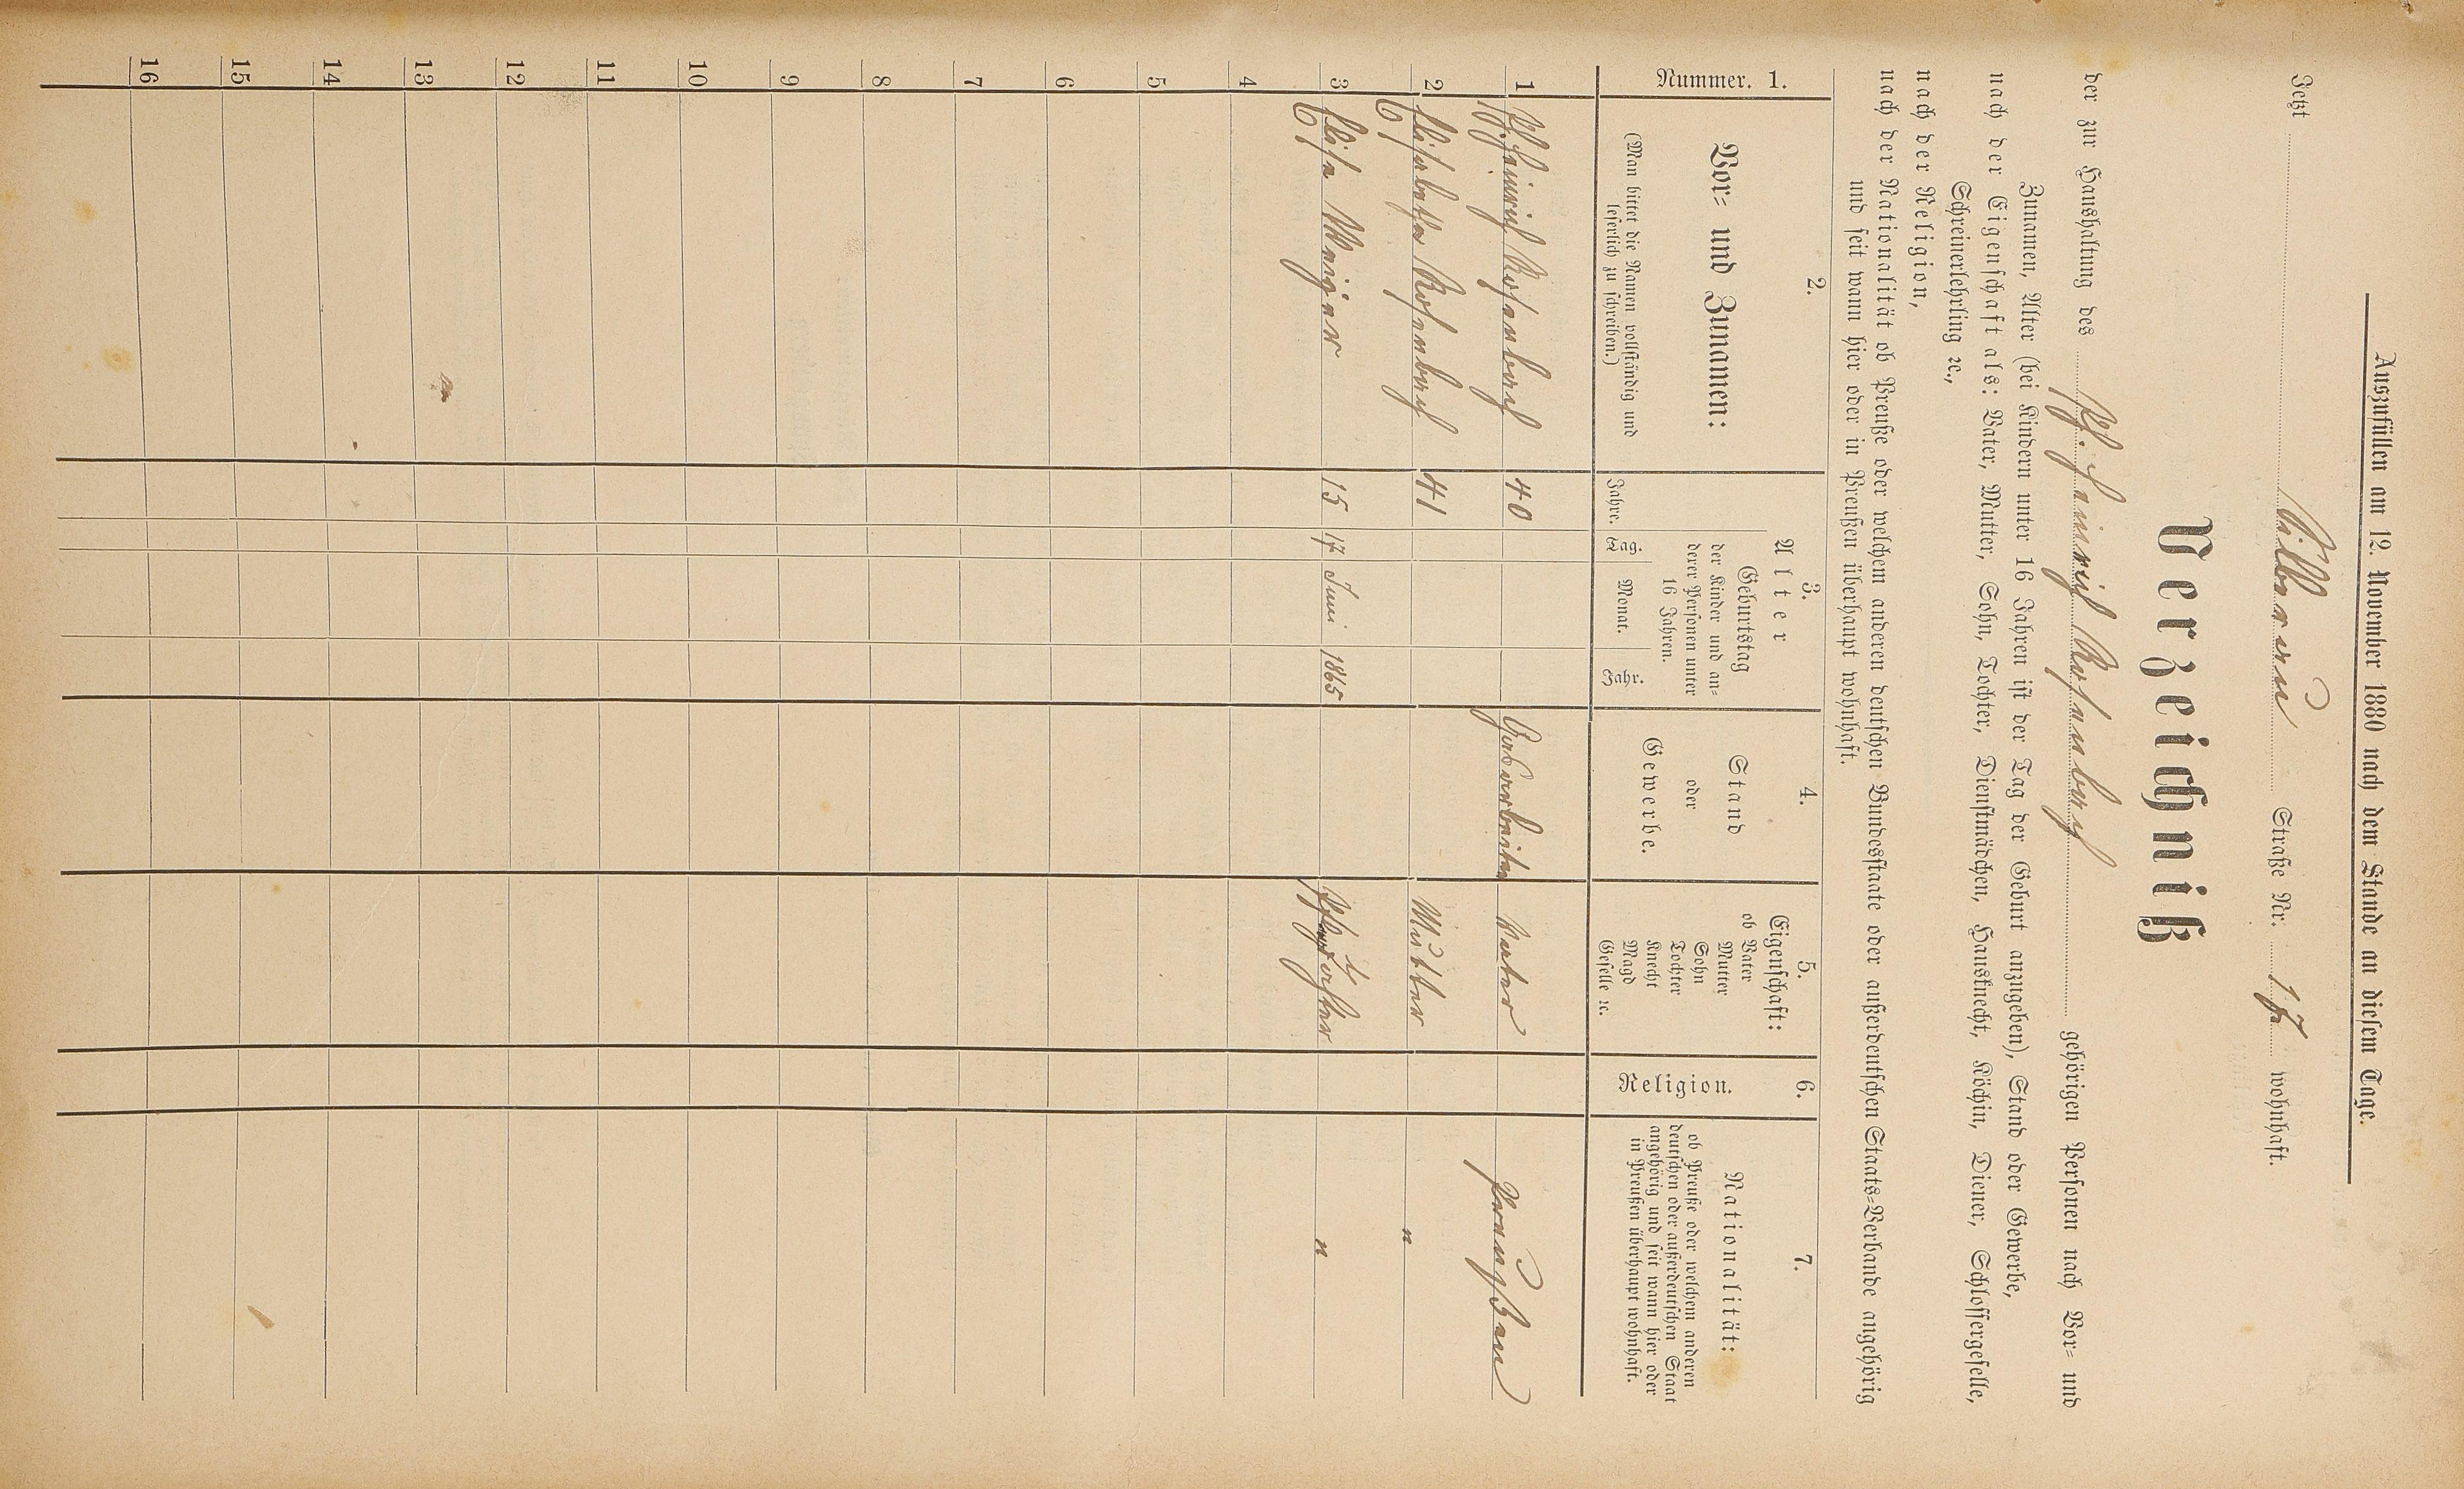 Auszufüllen am 12. November 1880 nach dem Stande an diesem Tage.
Jetzt Straße Nr. 17 wohnhaft.
Verzeichniß
der zur Haushaltung des Ph. Heinrich Rosenbusch gehörigen Personen nach Vor- und
Zunamen, Alter (bei Kindern unter 16 Jahren ist der Tag der Geburt anzugeben), Stand oder Gewerbe,
nach der Eigenschaft als: Vater, Mutter, Sohn, Tochter, Dienstmädchen, Hausknecht, Köchin, Diener, Schlossergeselle,
Schreinerlehrling ꝛc.,
nach der Religion,
nach der Nationalität ob Preuße oder welchem anderen deutschen Bundesstaate oder außerdeutschen Staats-Verbande angehörig
und seit wann hier oder in Preußen überhaupt wohnhaft.
Nummer. 1.
2.
Vor- und Zunamen:
(Man bittet die Namen vollständig und
leserlich zu schreiben.)
3.
Alter
Jahre.
Geburtstag
der Kinder und an-
derer Personen unter
16 Jahren.
Tag. Monat. Jahr.
4.
Stand
oder
Gewerbe.
5.
Eigenschaft:
ob Vater
Mutter
Sohn
Tochter
Knecht
Magd
Geselle ꝛc.
6.
Religion.
7.
Nationalität:
ob Preuße oder welchem anderen
deutschen oder außerdeutschen Staat
angehörig und seit wann hier oder
in Preußen überhaupt wohnhaft.
1 Ph. Heinrich Rosenbusch 40 Vater Preußen
2 Elisabetha Rosenbusch 41 Mutter "
3 Elise 15 17 Juni 1865 "
4
5
6
7
8
9
10
11
12
13
14
15
16